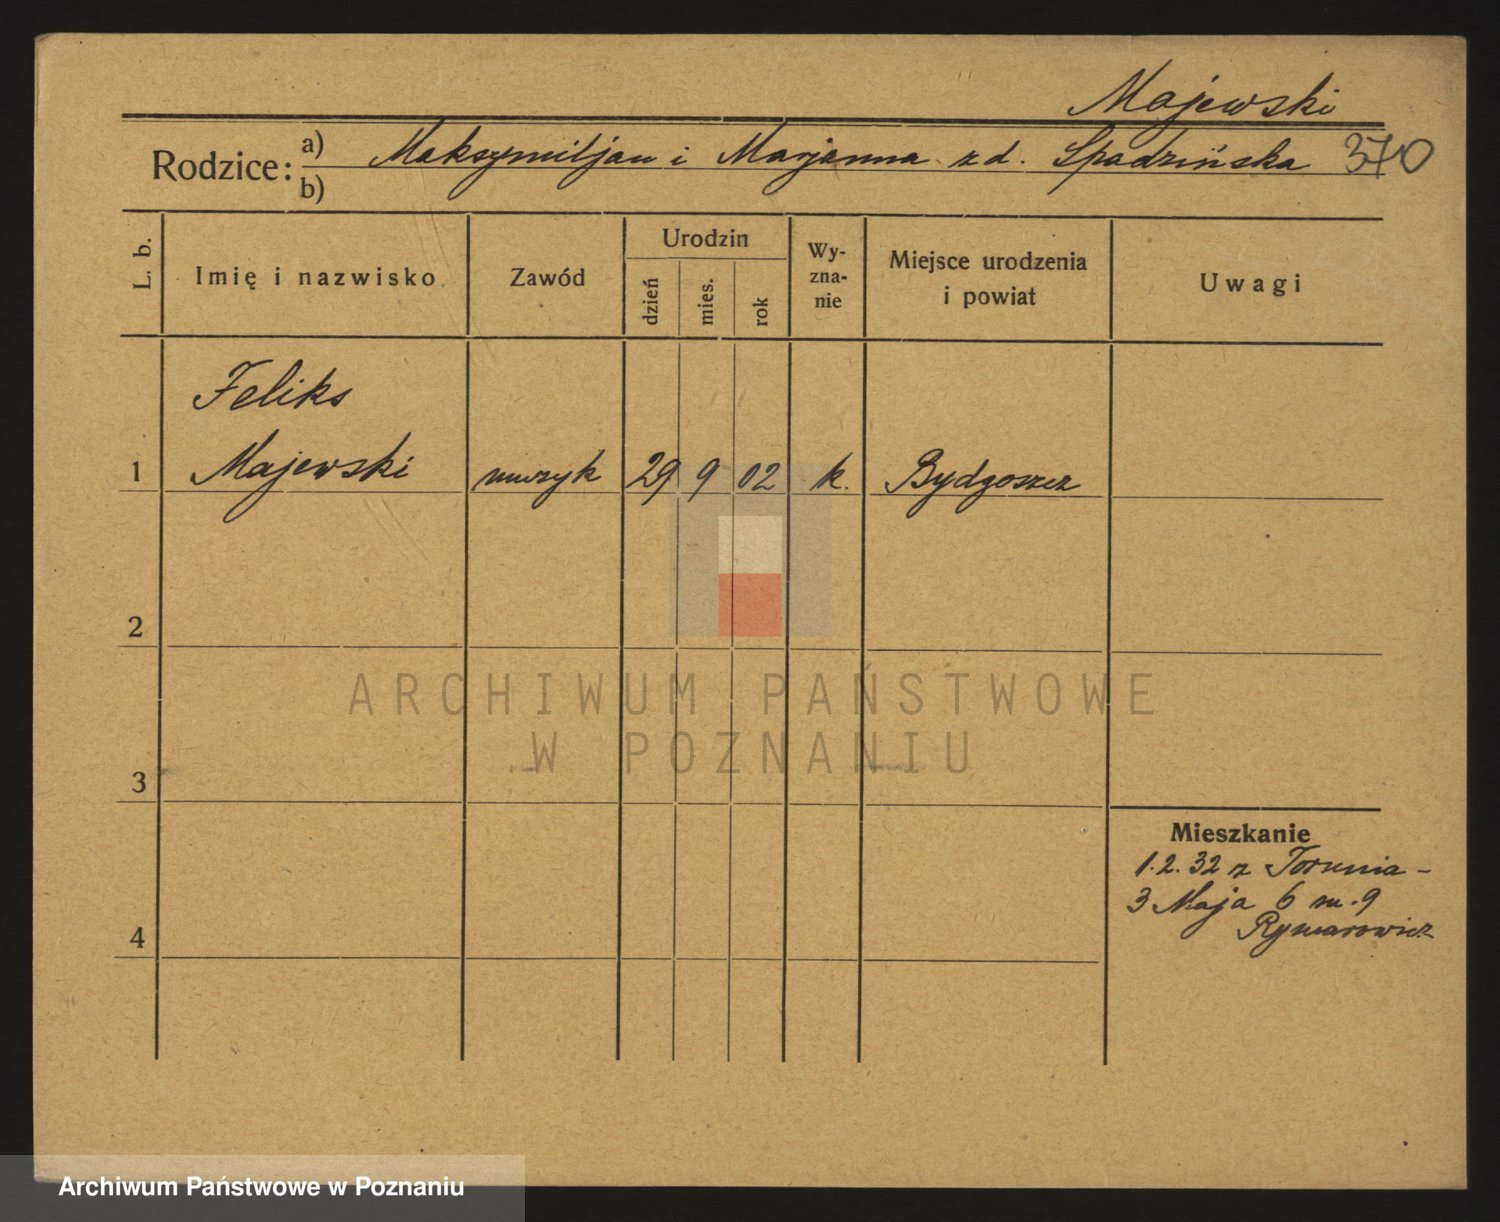 Majewski
Rodzice: a) Maksymiljan i Marjanna z d. Spadzińska 370
b)
L. b. Imię i nazwisko Zawód Urodzin dzień mies. rok Wy-zna-nie Miejsce urodzenia i powiat Uwagi
Feliks
1 Majewski muzyk 29 9 02 k. Bydgoszcz
2
ARCHIWUM PAŃSTWOWE
W POZNANIU
3
Mieszkanie
1.2.32 z Torunia -
3 Maja 6 m. 9
Rymarowicz
4
Archiwum Państwowe w Poznaniu